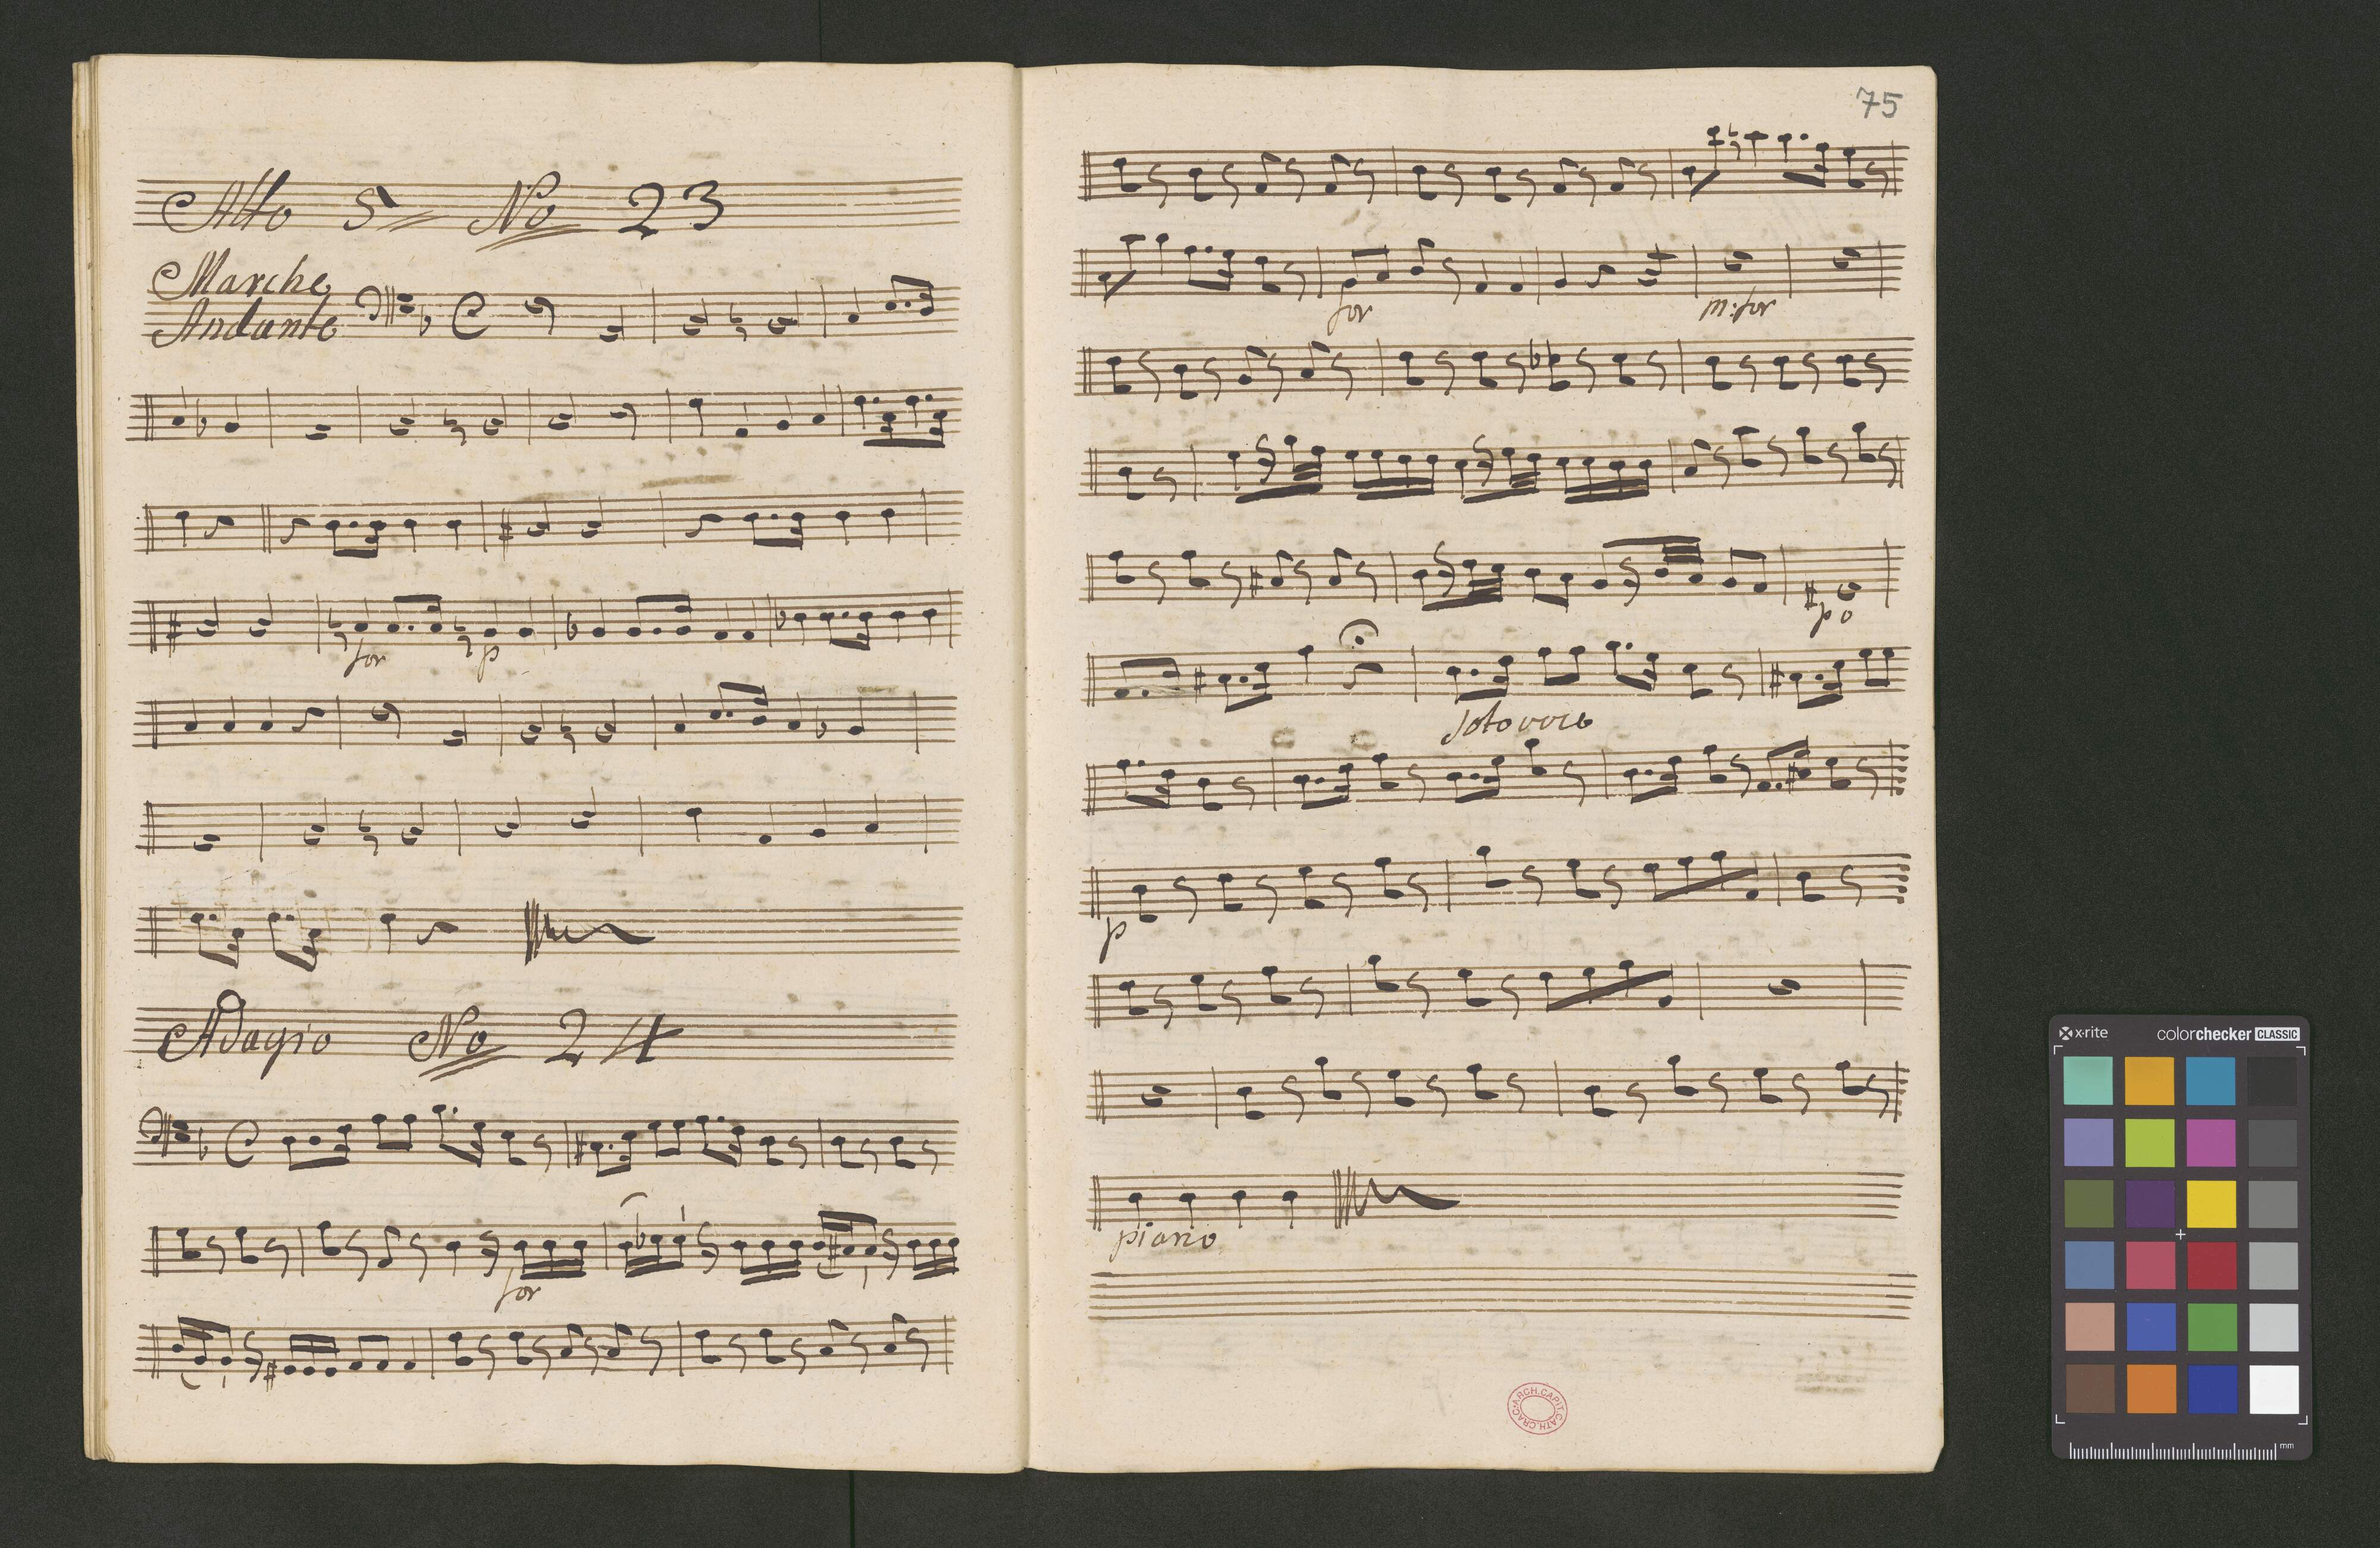 Alto 5 No 23
Marche
Andante
for p
Adagio No 24
for
75
for m: for
po
soto voce
p
piano
ARCH. CAPIT. CATH. CRAC.
x-rite colorchecker CLASSIC
mm